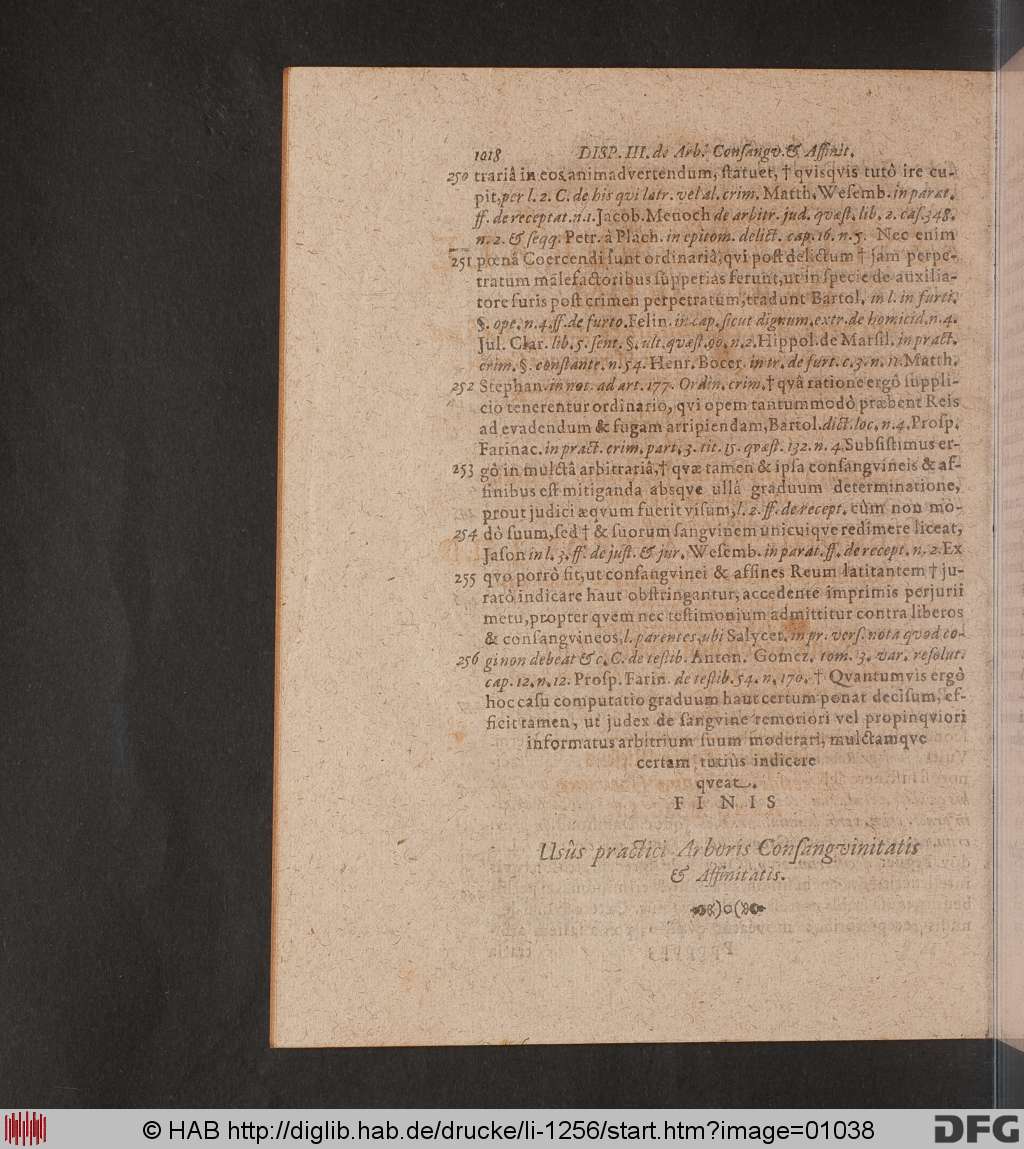 1018 DISP. III. de Arb. Consangv. & Affinit.
250 trariâ in eos animadvertendum, statuet, † qvisqvis tutò ire cu-
pit, per l. 2. C. de his qvi latr. vel al. crim. Matth. Wesemb. in parat.
ff. de receptat. n. 1. Jacob. Menoch de arbitr. jud. qvæst. lib. 2. cas. 348.
n. 2. & seqq. Petr. à Plach. in epitom. delict. cap. 16. n. 5. Nec enim
251 pœnâ Coercendi sunt ordinariâ, qvi post delictum † jam perpe-
tratum malefactoribus suppetias ferunt, ut in specie de auxilia-
tore furis post crimen perpetratum, tradunt Bartol. in l. in furti.
§. ope. n. 4. ff. de furto. Felin. in cap. sicut dignum. extr. de homicid. n. 4.
Jul. Clar. lib. 5. sent. §. ult. qvæst. 90. n. 2. Hippol. de Marsil. in pract.
crim. §. constante. n. 54. Henr. Bocer. in tr. de furt. c. 3. n. 11. Matth.
252 Stephan. in not. ad art. 177. Ordin. crim. † qvâ ratione ergô suppli-
cio tenerentur ordinario, qvi opem tantummodò præbent Reis
ad evadendum & fugam arripiendam, Bartol. dict. loc. n. 4. Prosp.
Farinac. in pract. crim. part. 3. tit. 15. qvæst. 132. n. 4. Subsistimus er-
253 gô in mulctâ arbitrariâ, † qvæ tamen & ipsa consangvineis & af-
finibus est mitiganda absqve ullâ graduum determinatione,
prout judici æqvum fuerit visum, l. 2. ff. de recept. cùm non mo-
254 dò suum, sed † & suorum sangvinem unicuiqve redimere liceat,
Jason in l. 3. ff. de just. & jur. Wesemb. in parat. ff. de recept. n. 2. Ex
255 qvo porrò fit, ut consangvinei & affines Reum latitantem † ju-
ratò indicare haut obstringantur, accedente imprimis perjurii
metu, propter qvem nec testimonium admittitur contra liberos
& consangvineos, l. parentes, ubi Salycet. in pr. vers. nota qvod co-
256 gi non debeat & c. C. de testib. Anton. Gomez. tom. 3. var. resolut.
cap. 12. n. 12. Prosp. Farin. de testib. 54. n. 170. † Qvantumvis ergò
hoc casu computatio graduum haut certum ponat decisum, ef-
ficit tamen, ut judex de sangvine remotiori vel propinqviori
informatus arbitrium suum moderari, mulctamqve
certam tutiùs indicere
qveat.
F I N I S
Usûs practici Arboris Consangvinitatis
& Affinitatis.
© HAB http://diglib.hab.de/drucke/li-1256/start.htm?image=01038
DFG